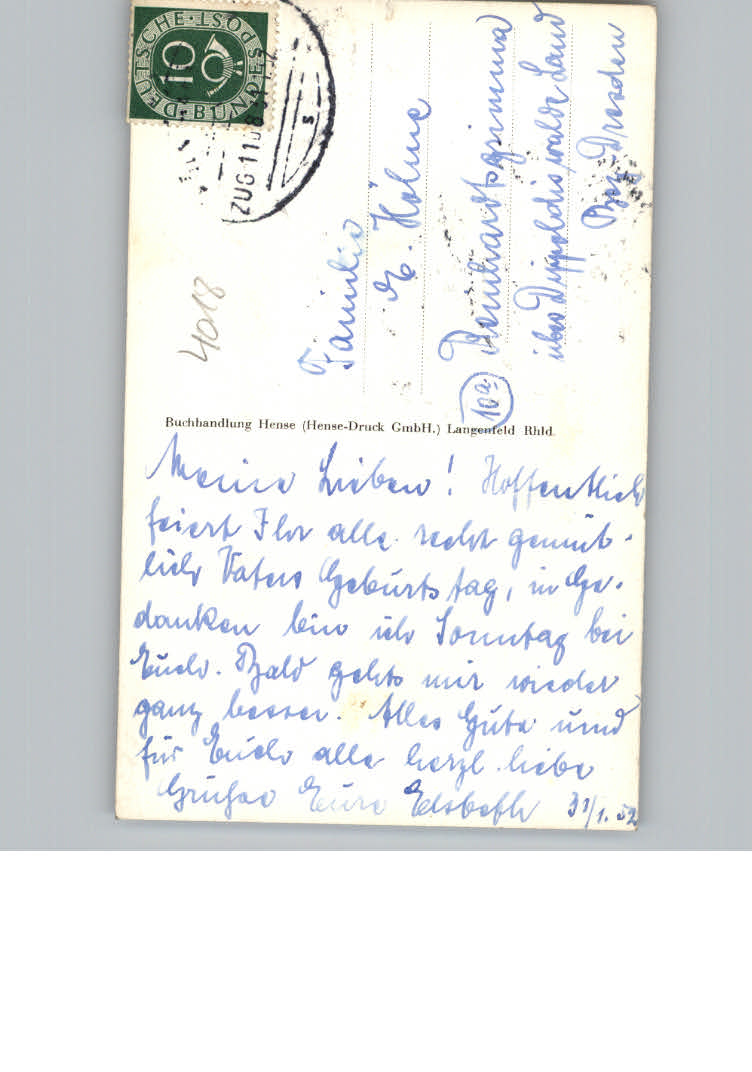 DEUTSCHE BUNDESPOST
10
ZUG 1108
s
4018
Familie
E. Höhme
(10a) Reinhardtsgrimma
über Dippoldiswalde Land
Bez. Dresden
Buchhandlung Hense (Hense-Druck GmbH.) Langenfeld Rhld.
Meine Lieben! Hoffentlich
feiert Ihr alle recht gemüt-
lich Vaters Geburtstag, in Ge-
danken bin ich Sonntag bei
Euch. Bald gehts mir wieder
ganz besser. Alles Gute und
für Euch alle herzl. liebe
Grüße Eure Elsbeth 31/1. 52